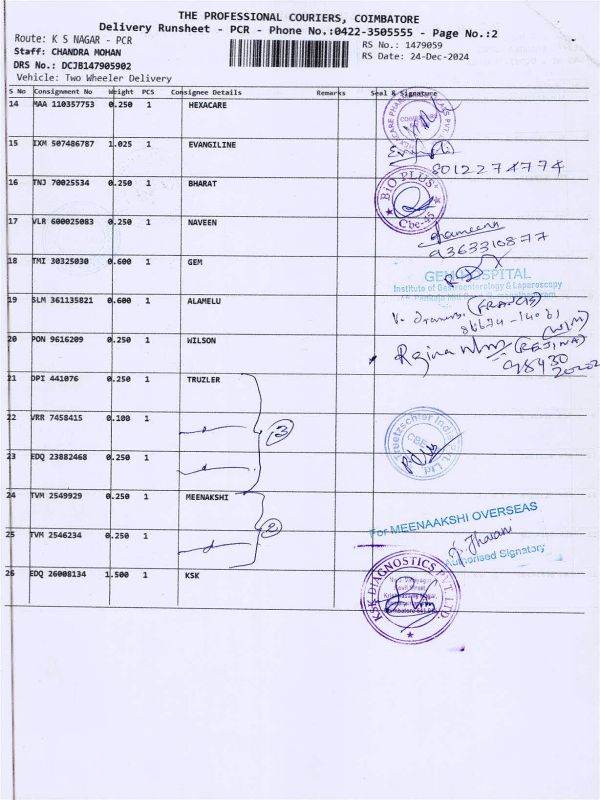 THE PROFESSIONAL COURIERS, COIMBATORE
Delivery Runsheet - PCR - Phone No.:0422-3505555 - Page No.:2
Route: K S NAGAR - PCR
RS No.: 1479059
Staff: CHANDRA MOHAN
RS Date: 24-Dec-2024
DRS No.: DCJB147905902
Vehicle: Two Wheeler Delivery
S No Consignment No Weight PCS Consignee Details Remarks Seal & Signature
14 MAA 110357753 0.250 1 HEXACARE
15 IXM 507486787 1.025 1 EVANGILINE
8012274774
16 TNJ 70025534 0.250 1 BHARAT
BiO PLUS
Cbe-45
17 VLR 600025083 0.250 1 NAVEEN
9363310877
18 TMI 30325030 0.600 1 GEM
GEM HOSPITAL
Institute of Gastroenterology & Laparoscopy
19 SLM 361135821 0.600 1 ALAMELU
(FRANCIS)
20 PON 9616209 0.250 1 WILSON
Regina
(REJINA)
98430
20202
21 OPI 441076 0.250 1 TRUZLER
22 VRR 7458415 0.100 1
3
Truetzschler India Pvt. Ltd
CBE
23 EDQ 23882468 0.250 1
24 TVM 2549929 0.250 1 MEENAKSHI
2
For MEENAAKSHI OVERSEAS
25 TVM 2546234 0.250 1
Authorised Signatory
26 EDQ 26008134 1.500 1 KSK
KSK DIAGNOSTICS PVT. LTD.